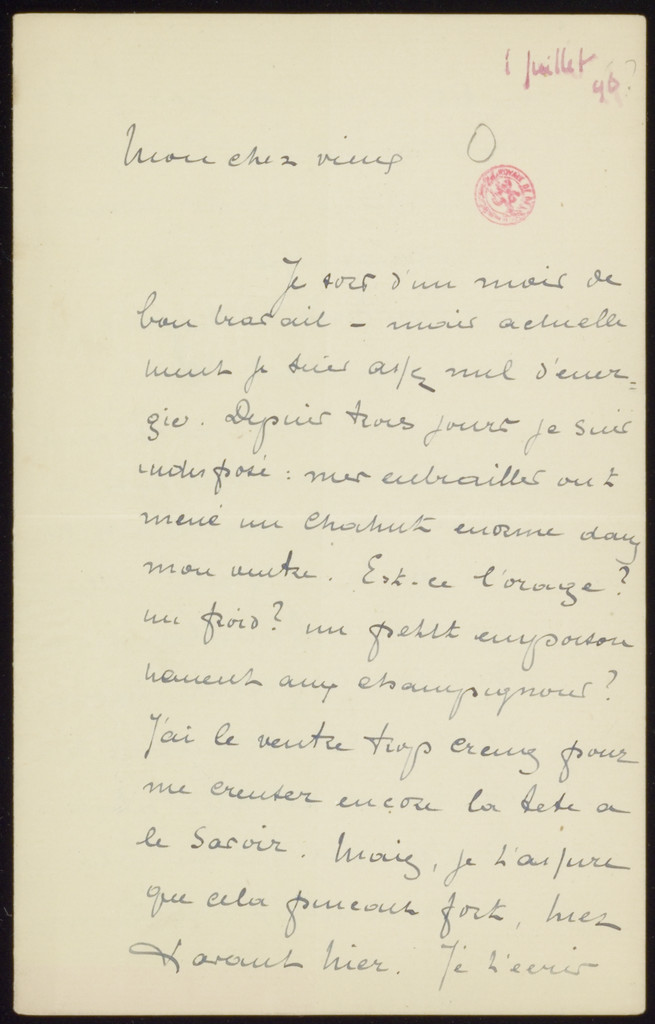 1 juillet
96?
Mon cher vieux
Je sors d'un mois de
bon travail – mais actuelle
ment je suis assez nul d'éner=
gie. Depuis trois jours je suis
indisposé : mes entrailles ont
mené un chahut enorme dans
mon ventre. Est-ce l'orage ?
un froid ? un petit empoison
nement aux champignons ?
J'ai le ventre trop creux pour
me creuser encore la tete a
le savoir. Mais, je t'assure
que cela pincait fort, hier
& avant hier. Je t'écris